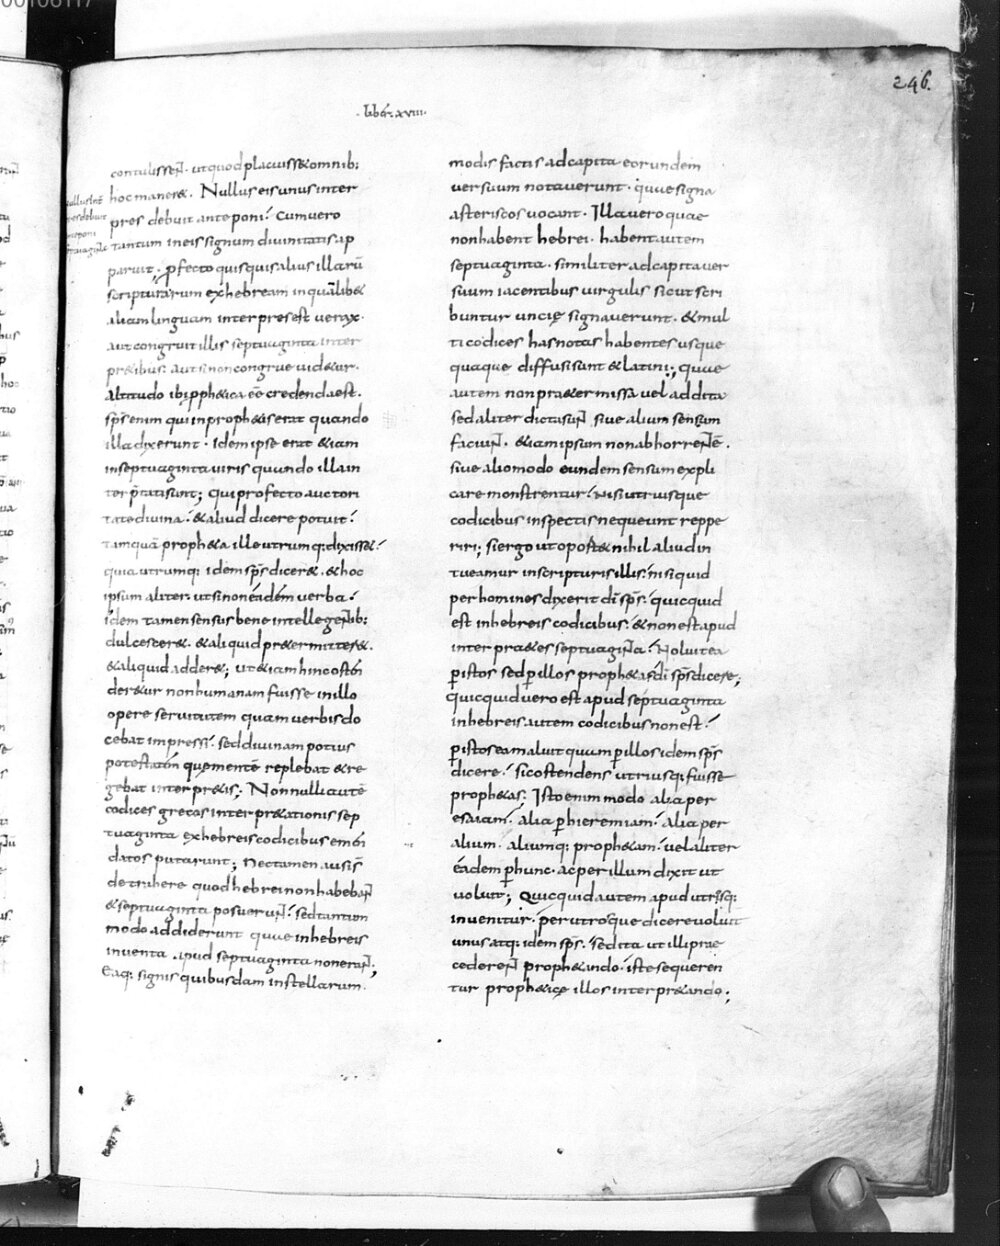 246.
· liber · xviii ·
contulissent̄ · ut quod placuiss& omnib;
hoc maner& · Nullus eis unus inter
pres debuit anteponi · Cum uero
tantum in eis signum diuinitatis ap
paruit · ꝓfecto quisquis alius illarū
scripturarum ex hebrea in quālib&
aliam linguam interpres est uerax ·
aut congruit illis septuaginta inter
pr&ibus · aut si non congruere uid&ur ·
altitudo ibi pph&ica eē credenda est ·
sp̄s enim qui in proph&is erat quando
illa dixerunt · idem ipse erat &iam
in septuaginta uiris quando illa in
terp̄tati sunt; qui profecto auctori
tate diuina · & aliud dicere potuit ·
tamquā proph&a ille utrumq; dixiss& ·
quia utrumq; idem sp̄s dicer& · & hoc
ipsum aliter · ut si non eadem uerba ·
idem tamen sensus bene intellegentib;
dulcescer& · & aliquid pr&ermitter& ·
& aliquid adder&; ut &iam hinc ostēn
der&ur non humanam fuisse in illo
opere seruitutem quam uerbis do
cebat impressi · sed diuinam potius
potestatem quę mentē replebat & re
gebat interpr&is; Nonnulli autē
codices grecos interpr&ationis sep
tuaginta ex hebreis codicibus emēn
datos putarunt; Nec tamen ausi s̄
detrahere quod hebrei non habebant̄
& septuaginta posuerunt̄ · sed tantum
modo addiderunt quae in hebreis
inuenta apud septuaginta non erant̄;
Eaq; signis quibusdam in stellarum
modis factis ad capita eorundem
uersuum notauerunt · quae signa
asteriscos uocant · Illa uero quae
non habent hebrei · habent autem
septuaginta · similiter ad capita uer
suum iacentibus uirgulis sicut scri
buntur uncię signauerunt · & mul
ti codices has notas habentes usque
quaque diffusi sunt & latini; quae
autem non pra&ermissa uel addita
sed aliter dicta sunt̄ siue alium sensum
faciunt̄ · &iam ipsum non abhorrentē ·
siue alio modo eundem sensum expli
care monstrentur · nisi utrisque
codicibus inspectis nequeunt reppe
riri; si ergo ut oport& nihil aliud in
tueamur in scripturis illis · nisi quid
per homines dixerit dī sp̄s · quicquid
est in hebreis codicibus · & non est apud
interpr&es septuaginta · Noluit ea
ꝑ istos sed ꝑ illos proph&as dī sp̄s dicere;
quicquid uero est apud septuaginta
in hebreis autem codicibus non est ·
ꝑ istos ea maluit quam ꝑ illos idem sp̄s
dicere · sic ostendens utrosq; fuisse
proph&as; Isto enim modo alia per
esaiam · alia ꝑ hieremiam · alia per
alium · aliumq; proph&am · uel aliter
eadem ꝑ hunc · ac per illum dixit ut
uoluit; Quicquid autem apud utrosq;
inuenitur · per utrosque dicere uoluit
unus atq; idem sp̄s · sed ita ut illi prae
cederent̄ proph&ando · iste sequeren
tur proph&icę illos interpr&ando;